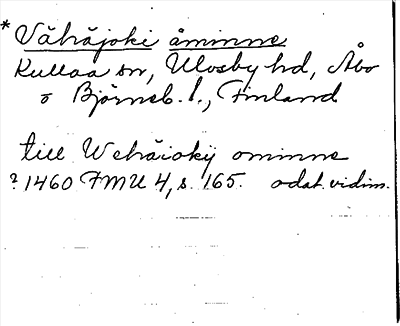 * Vähäjoki åminne
Kullaa sn, Ulvsby hd, Åbo
o Björneb. l., Finland
till Wehäioky ominne
? 1460 FMU 4, s. 165. odat. vidim.